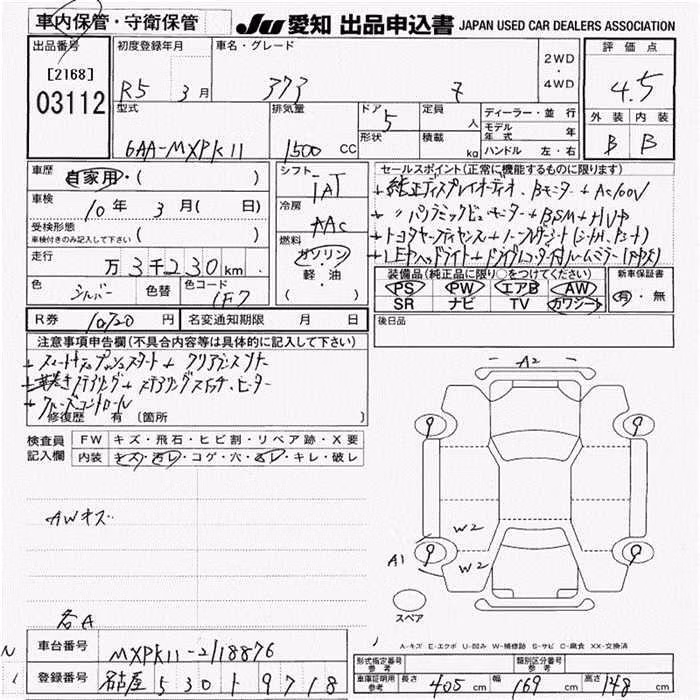 車内保管・守衛保管
JU 愛知 出品申込書 JAPAN USED CAR DEALERS ASSOCIATION
出品番号
[2168]
03112
初度登録年月
R5 3月
車名・グレード
Z
2WD
・
4WD
評価点
4.5
外装 内装
B B
型式
6AA-MXPK11
排気量
1500 CC
ドア 5
形状
定員 人
積載 kg
ディーラー・並行
モデル年式 年
ハンドル 左・右
車歴
自家用・( )
車検
10年 3月( 日)
受検形態
車検付きのみ記入して下さい ( )
走行
万 3千230km
色 シルバー
色替
色コード 1F7
シフト
IAT
冷房
AAC
燃料
ガソリン
軽・油
( )
セールスポイント(正常に機能するものに限ります)
+純正ディスプレイオーディオ、Bモニター+AC100V
+〃パノラミックビューモニター+BSM+HUD
装備品(純正品に限り○をつけてください)
PS PW エアB AW
SR ナビ TV カワシート
新車保証書
有・無
R券 10720円
名変通知期限 月 日
後日品
注意事項申告欄(不具合内容等は具体的に記入して下さい)
+スマートキー プッシュスタート+クリアランスソナー
ステアリング+ステアリングスイッチ、ヒーター
+クルーズコントロール
修復歴 有 〔箇所 〕
検査員
記入欄
FW キズ・飛石・ヒビ割・リペア跡・X要
内装 キズ・汚レ・コゲ・穴・スレ・キレ・破レ
AWキズ
各A
A2
9
9
9
9
W2
A1
W2
スペア
A-キズ E-エクボ U-凹み W-補修跡 S-サビ C-腐食 XX-交換済
N
車台番号
MXPK11-2118876
登録番号
名古屋 530 ト 9718
形式指定番号
参考
類別区分番号
参考
車庫証明用
参考
長さ 405cm 幅 169cm 高さ 148cm